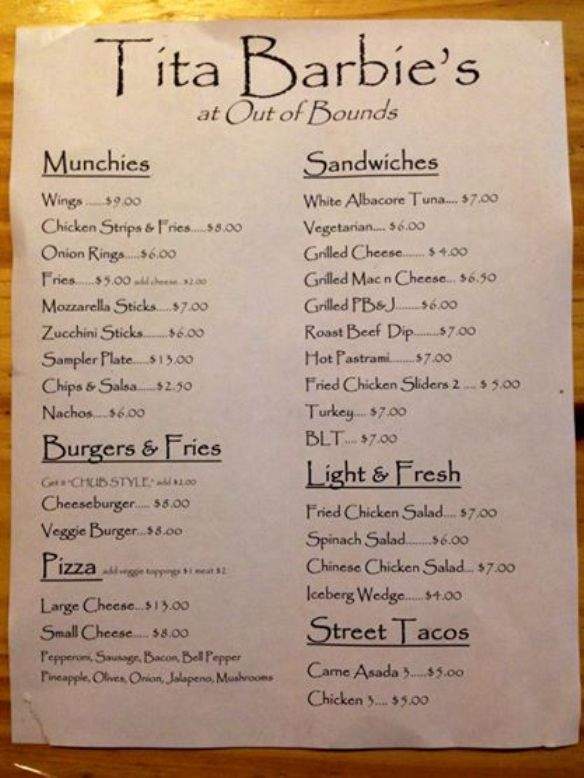 Tita Barbie's
at Out of Bounds
Munchies
Wings ......$9.00
Chicken Strips & Fries.....$8.00
Onion Rings.....$6.00
Fries......$5.00 add cheese.. $2.00
Mozzarella Sticks.....$7.00
Zucchini Sticks.......$6.00
Sampler Plate.....$13.00
Chips & Salsa......$2.50
Nachos.....$6.00
Burgers & Fries
Get it "CHUB STYLE," add $2.00
Cheeseburger..... $8.00
Veggie Burger...$8.00
Pizza add veggie toppings $1 meat $2
Large Cheese...$13.00
Small Cheese..... $8.00
Pepperoni, Sausage, Bacon, Bell Pepper
Pineapple, Olives, Onion, Jalapeno, Mushrooms
Sandwiches
White Albacore Tuna.... $7.00
Vegetarian.... $6.00
Grilled Cheese....... $4.00
Grilled Mac n Cheese... $6.50
Grilled PB&J........$6.00
Roast Beef Dip........$7.00
Hot Pastrami........$7.00
Fried Chicken Sliders 2 .... $5.00
Turkey.... $7.00
BLT.... $7.00
Light & Fresh
Fried Chicken Salad.... $7.00
Spinach Salad........$6.00
Chinese Chicken Salad... $7.00
Iceberg Wedge......$4.00
Street Tacos
Carne Asada 3.....$5.00
Chicken 3.... $5.00